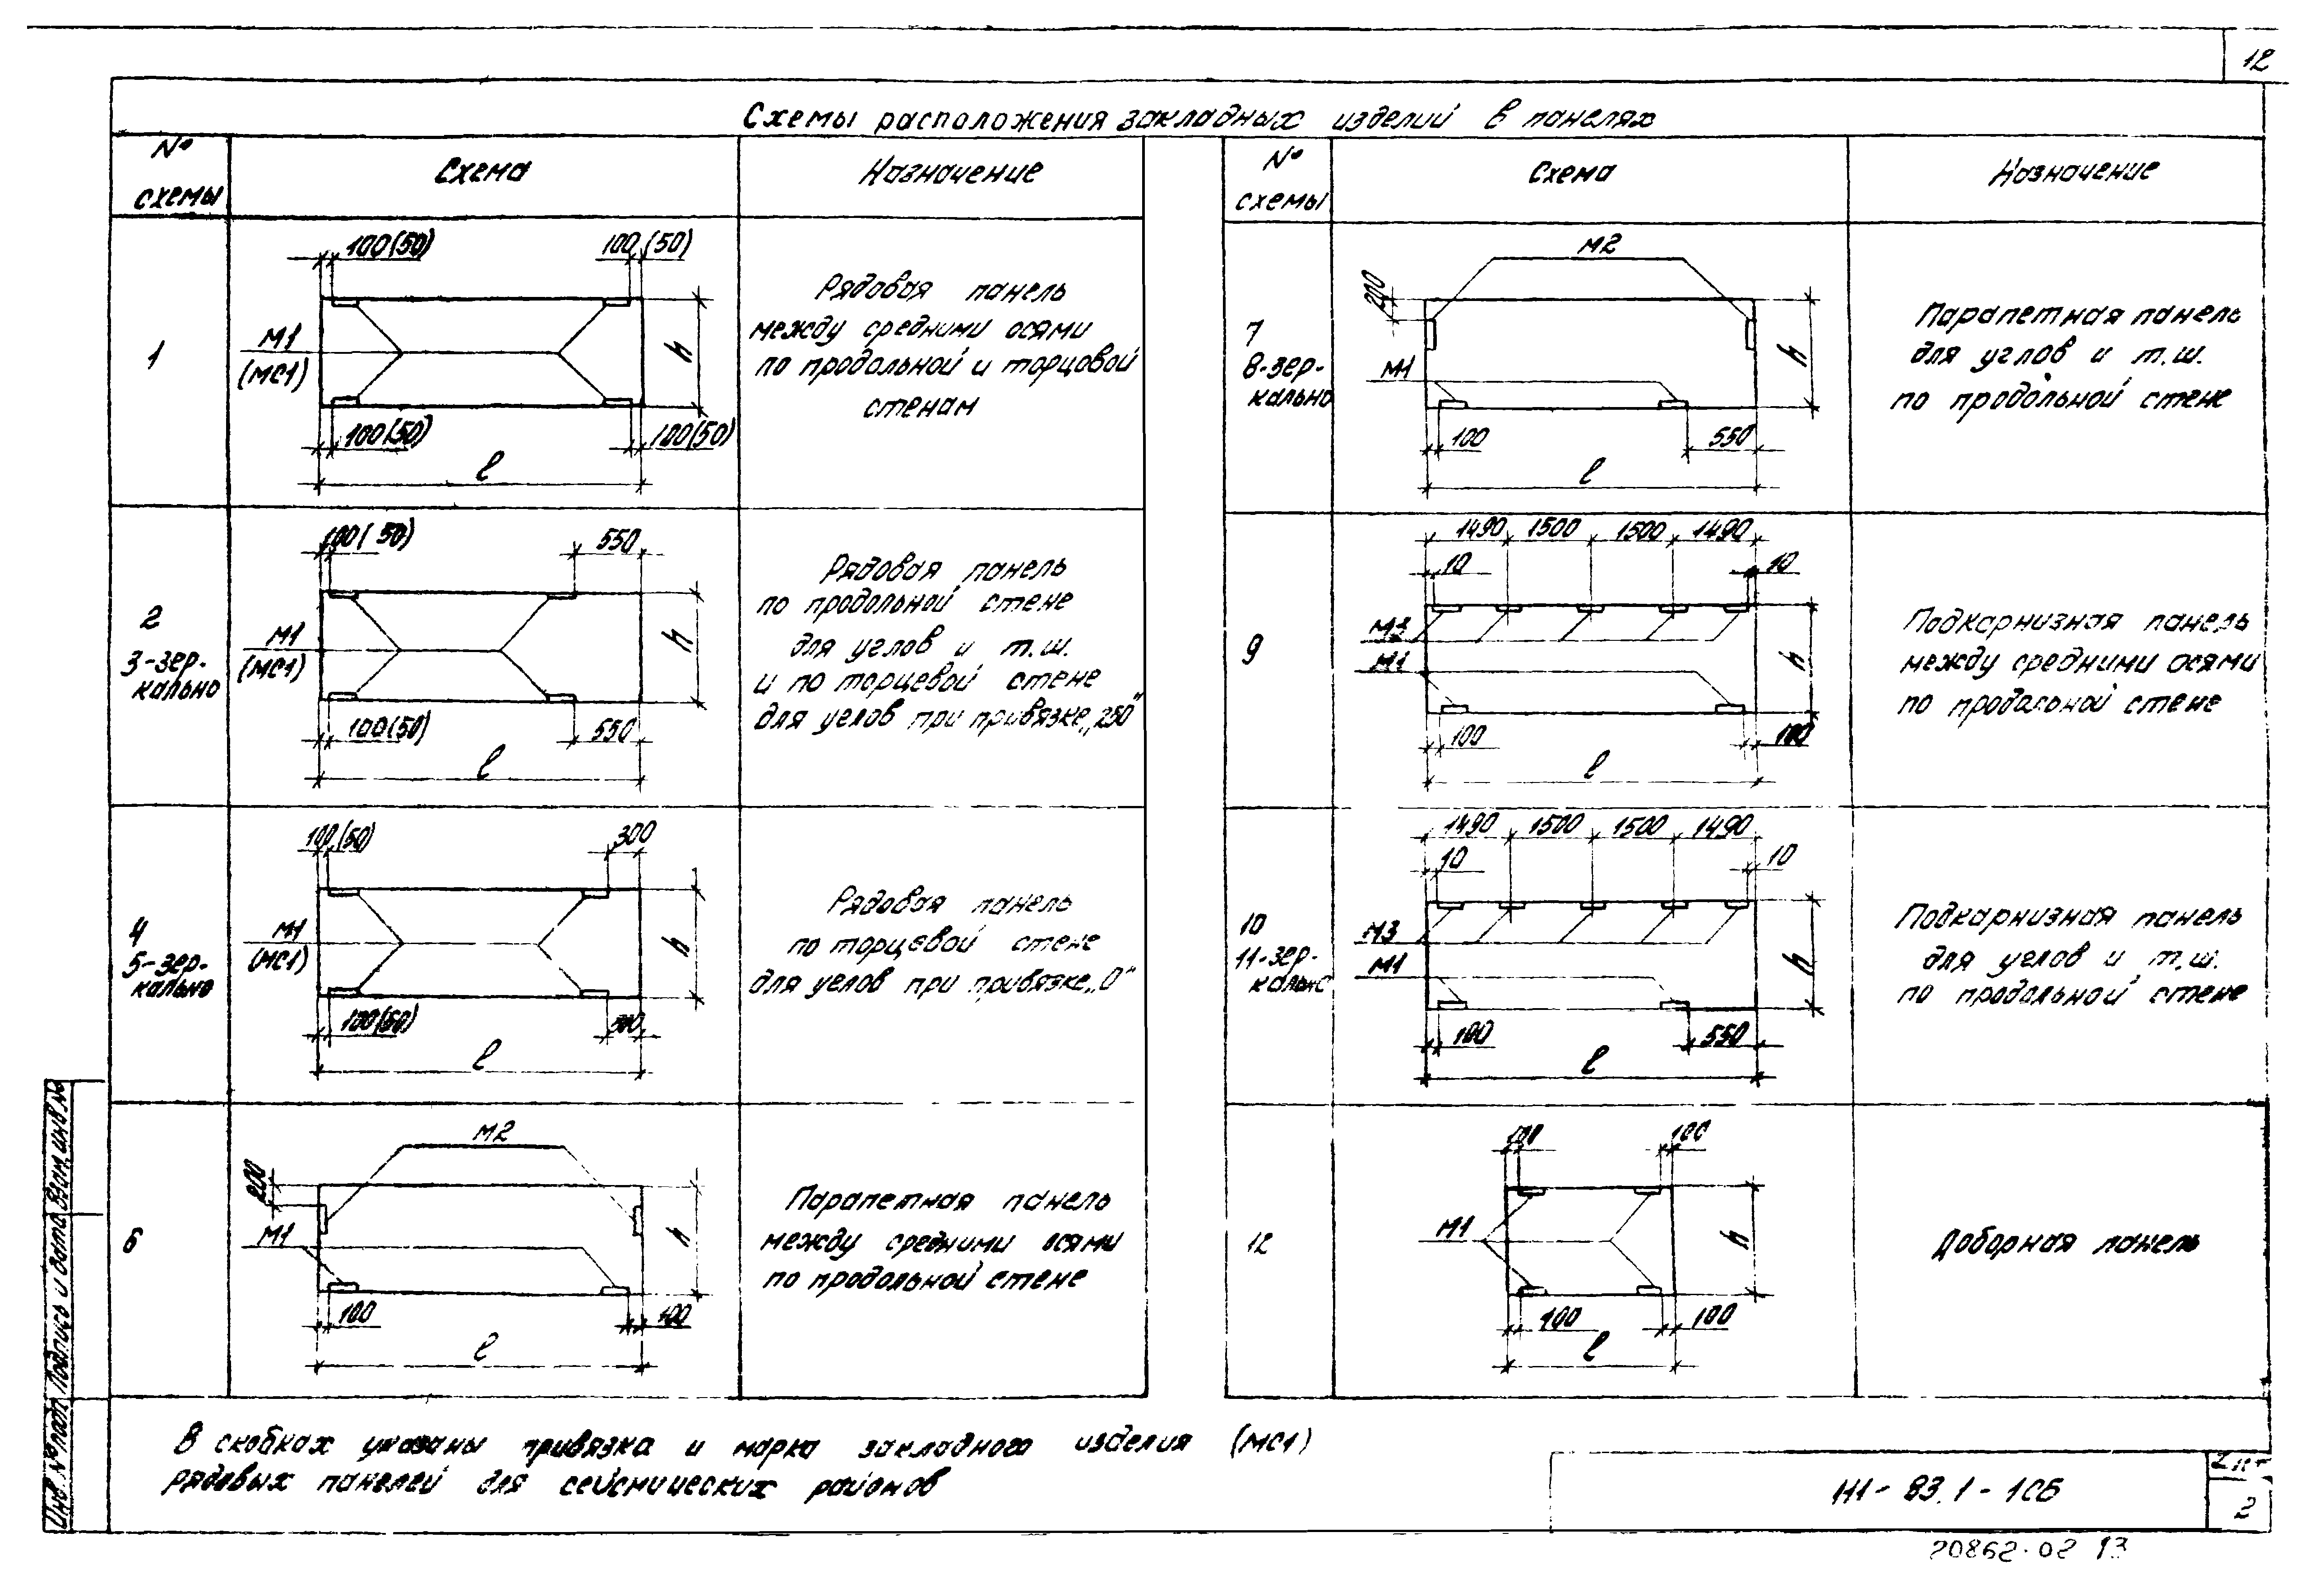 12
Схемы расположения закладных изделий в панелях
№ схемы
Схема
Назначение
1
100(50)
100(50)
М1
(МС1)
h
100(50)
100(50)
ℓ
Рядовая панель
между средними осями
по продольной и торцовой
стенам
2
3-зер-
кально
100(50)
550
М1
(МС1)
h
100(50)
550
ℓ
Рядовая панель
по продольной стене
для углов и т.ш.
и по торцевой стене
для углов при привязке „250"
4
5-зер-
кально
100(50)
300
М1
(МС1)
h
100(50)
300
ℓ
Рядовая панель
по торцевой стене
для углов при привязке „0"
6
М2
200
М1
h
100
100
ℓ
Парапетная панель
между средними осями
по продольной стене
№ схемы
Схема
Назначение
7
8-зер-
кально
М2
200
М1
h
100
550
ℓ
Парапетная панель
для углов и т.ш.
по продольной стене
9
1490 1500 1500 1490
10
10
М3
М1
h
100
100
ℓ
Подкарнизная панель
между средними осями
по продольной стене
10
11-зер-
кально
1490 1500 1500 1490
10
10
М3
М1
h
100
550
ℓ
Подкарнизная панель
для углов и т.ш.
по продольной стене
12
100
100
М1
h
100
100
ℓ
Доборная панель
В скобках указаны привязка и марка закладного изделия (МС1)
рядовых панелей для сейсмических районов
Инв. № подл. Подпись и дата Взам. инв. №
83.1-1СБ
2
20862-02 13